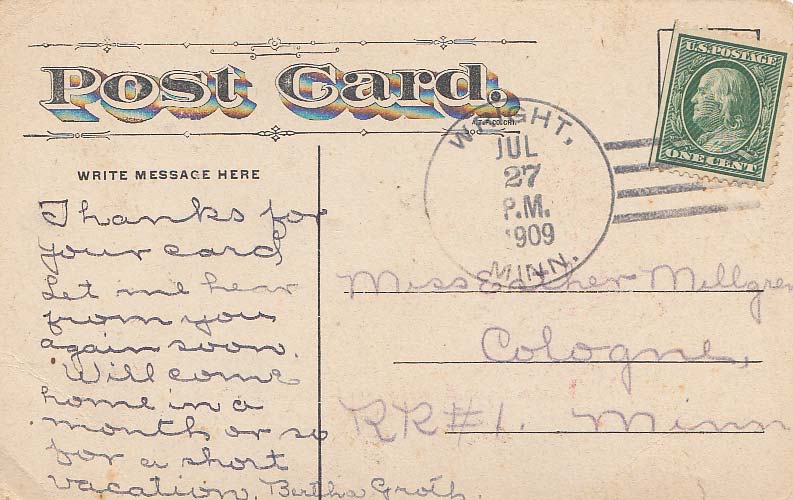 Post Card.
U.S. POSTAGE
ONE CENT
WRIGHT,
JUL
27
P.M.
1909
MINN.
WRITE MESSAGE HERE
Thanks for
your card
Let me hear
from you
again soon.
Will come
home in a
month or so
for a short
vacation. Bertha Groth.
Miss Esther Mellgren
Cologne,
RR#1. Minn